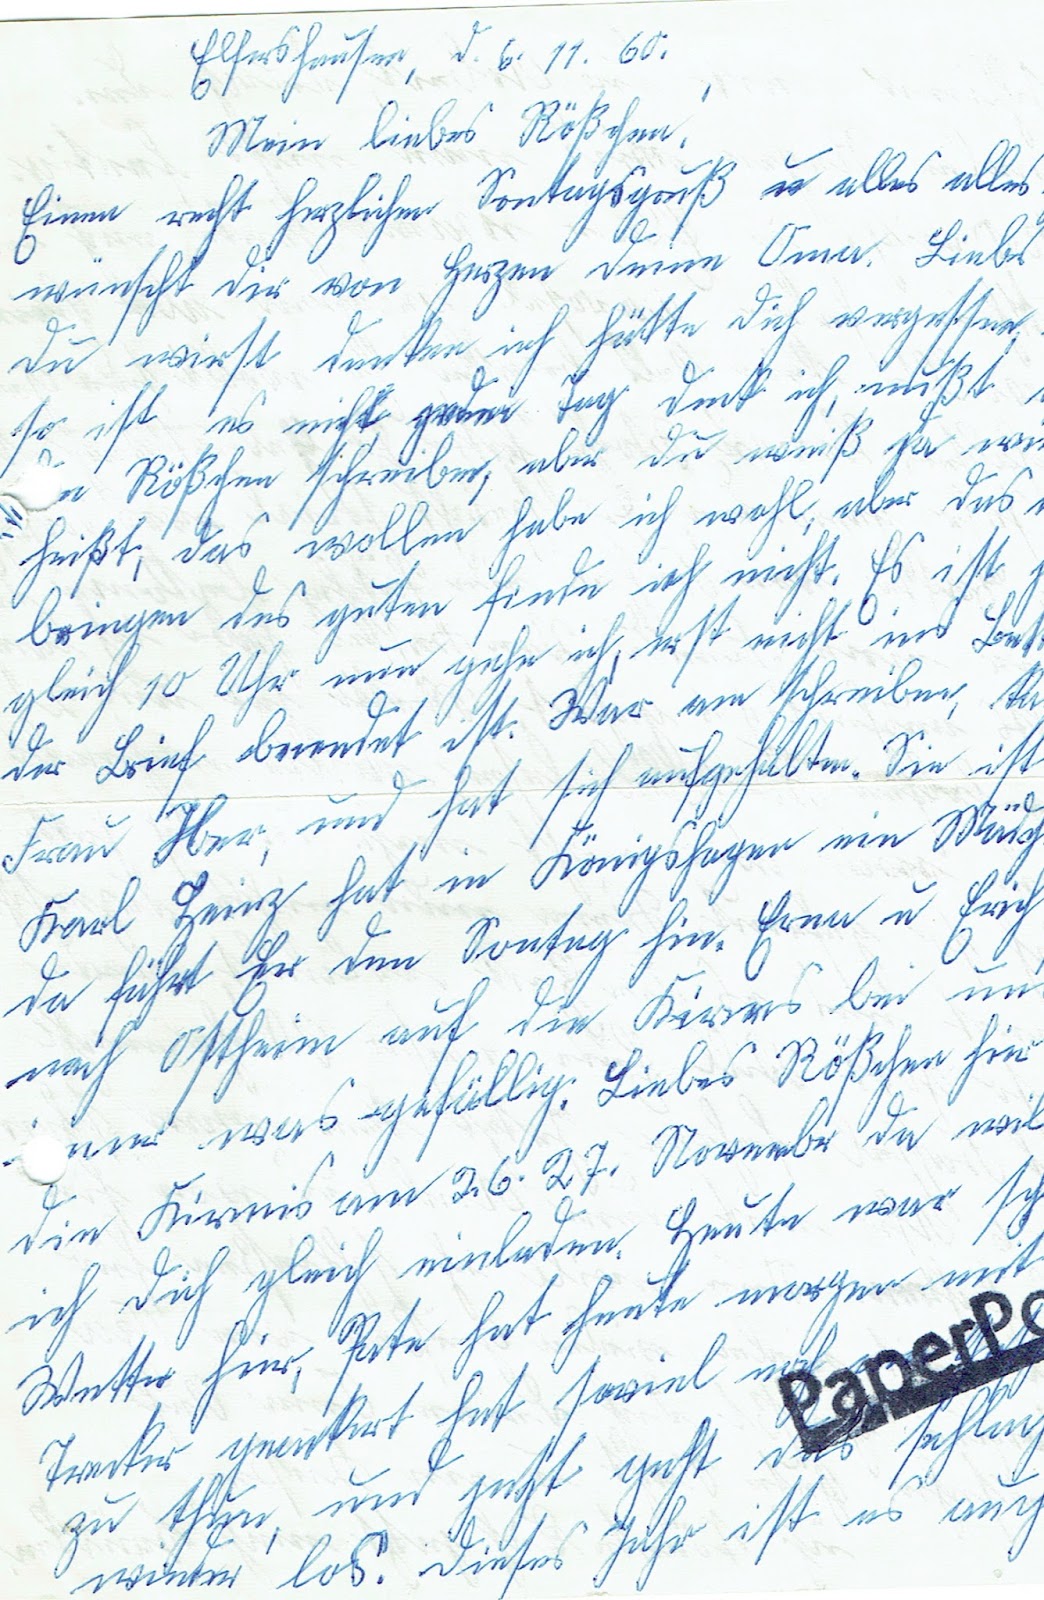 Elfershausen, d. 6. 11. 60.
Mein liebes Rößchen!
Einen recht herzlichen Sontagsgruß u alles alles
wünscht dir von Herzen deine Oma. Liebs
du wirst denken ich hätte dich vergessen,
so ist es nicht jeden Tag denk ich, mußt
Rößchen schreiben, aber du weiß ja wie
heißt, das wollen habe ich wohl, aber das
bringen des guten finde ich nicht. Es ist
gleich 10 Uhr nun gehe ich erst nicht ins Bett
der Brief beendet ist. War am schreiben, ka
Frau Iber, und hat sich aufgehalten. Sie ist
Karl Heinz hat in Königshagen ein Mädch
da fährt Er den Sontag hin. Erna u Erich
nach Ostheim auf die Kirmes bei un
mer was gefällig. Liebes Rößchen hier
die Kirmis am 26. 27. November da wil
ich dich gleich einladen. Heute war sch
Wetter hier, Pate hat heute morgen mit
Trecker geackert hat soviel
PaperPo
zu thun, und jetzt geht das schlach
wieder los. dieses Jahr ist es auch